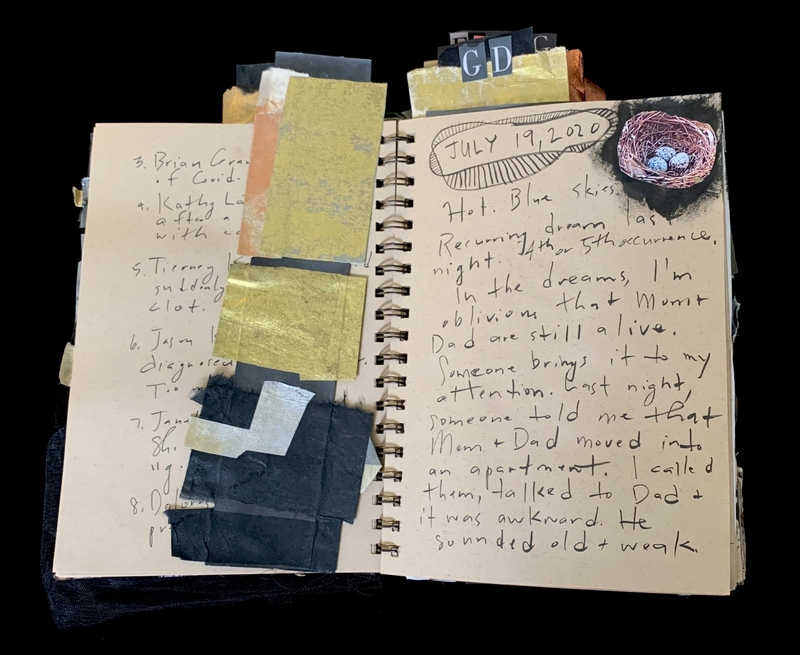 G D
JULY 19, 2020
3. Brian
of Covid.
Kathy
after a
with
5. Tierney
suddenly
clot.
6. Jason
diagnosed
7.
8.
Hot. Blue skies.
Recurring dream last
night. 4th or 5th occurrence.
In the dreams, I'm
oblivious that Mom +
Dad are still alive.
Someone brings it to my
attention. Last night,
someone told me that
Mom + Dad moved into
an apartment. I called
them, talked to Dad +
it was awkward. He
sounded old + weak.